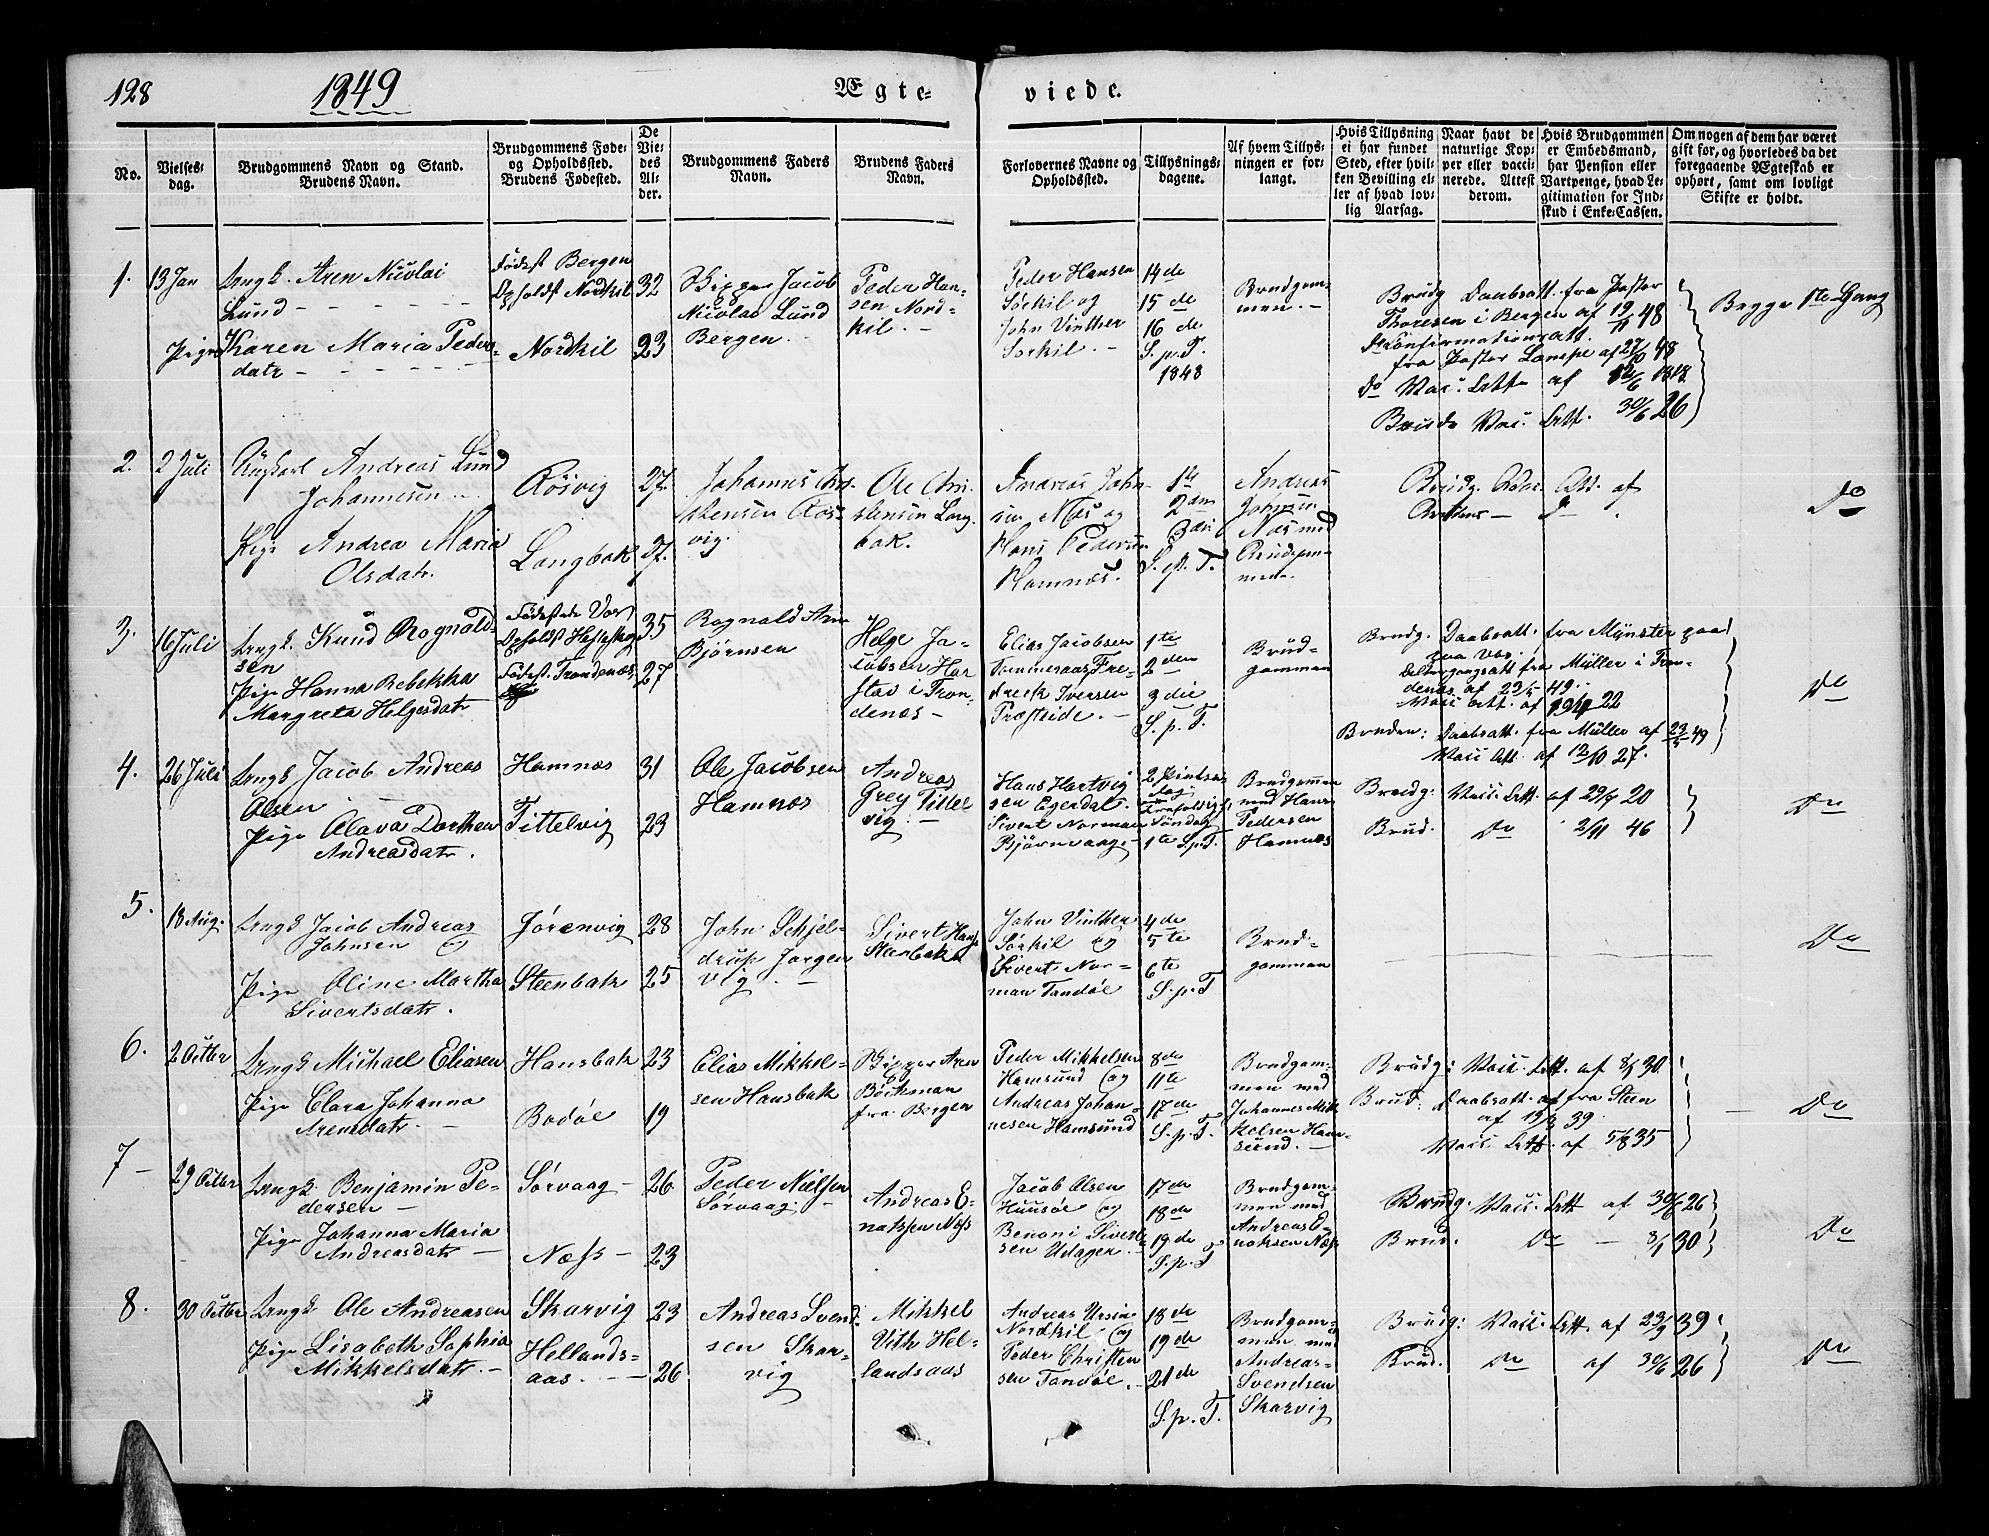 128
1849
Ægte-
viede.
No.
Vielses-
dag.
Brudgommens Navn og Stand.
Brudens Navn.
Brudgommens Føde-
og Opholdssted.
Brudens Fødested.
De
Vie-
des
Al-
der.
Brudgommens Faders
Navn.
Brudens Faders
Navn.
Forlovernes Navne og
Opholdssted.
Tillysnings-
dagene.
Af hvem Tillys-
ningen er for-
langt.
Hvis Tillysning
ei har fundet
Sted, efter hvil-
ken Bevilling el-
ler af hvad lov-
lig Aarsag.
Naar havt de
naturlige Kop-
per eller vacci-
nerede. Attest
derom.
Hvis Brudgommen
er Embedsmand,
har Pension eller
Vartpenge, hvad Le-
gitimation for Ind-
skud i Enke-Cassen.
Om nogen af dem har været
gift før, og hvorledes da det
foregaaende Ægteskab er
ophørt, samt om lovligt
Skifte er holdt.
1.
13 Jan
Ungk. Aren Nicolai
Lund
Pige Karen Maria Peders-
datr
Fødest Bergen
Opholdst Nordkil
Nordkil
32
23
Skipper Jacob
Nicolai Lund
Bergen.
Peder Han-
sen Nord-
kil.
Peder Hansen
Sørkil og
John Vinther
Sørkil.
14de
15de
16de
S. p. T.
1848
Brudgom-
men.
Brudg Daabsatt. fra Pastor
Thoresen i Bergen af 19/11 48
Do Confirmationsatt.
fra Pastor Lampe af 27/10 48
Do Vacc. Att af 12/6 1818
Bruds Vac. Att. 30/6 26
Begge 1te Gang
2.
2 Juli
Ungkarl Andreas Lund
Johannesen
Pige Andrea Maria
Olsdatr.
Rösvig
Langbak
27.
27.
Johannes Chri-
stensen Røs-
vig.
Ole Chri-
stensen Lang-
bak.
Andreas John-
sen Næs og
Hans Pedersen
Hamnæs.
1te
2den
3die
S. p. T.
Andreas
Johnsen
Næs med
Brudgom-
men.
Brudg. Vac. Att. af
Brudens
Do
3.
16 Juli
Ungk. Knud Rognald-
sen
Pige Hanna Rebekka
Margreta Helgesdatr
Fødestede Vos
Opholdst
Fødest. Trondenæs
35
27
Rognald
Bjørnsen
Helge Ja-
cobsen Har-
stad i Tron-
denæs
Elias Jacobsen
Sommersaas, Fre-
drick Iversen
Præsteide.
1te
2den
3die
S. p. T.
Brud-
gommen
Brudg. Daabsatt. fra Mÿnster
paa Vos.
fra Müller i Tron-
denæs af 23/5 49.
Vacc att. af
Bruden: Daabsatt. fra Müller af 23/5 49
Vacc Att. af 12/10 27.
Do
4.
26 Juli
Ungk Jacob Andreas
Olsen
Pige Olava Dorthea
Andreasdatr.
Hamnæs
Tittelvig
31
23
Ole Jacobsen
Hamnæs
Andreas
Greg Tittel
vig.
Hans Hartvig
sen Egerdal.
Sivert Norman
Bjørnvaag
2 Pintse-
dag
Trefoldigh.
Søndag
1te S.p.T.
Brudgommen
med Hans
Pedersen
Hamnæs
Brudg: Vacc. Att. af 29/7 20
Brud. Do 2/11 46
Do
5.
18 Aug.
Ungk Jacob Andreas
Johnsen og
Pige Oline Martha
Sivertsdatr.
Jørenvig
Steenbak
28
25
John Schjel-
drup Jørgen
vig.
Sivert Hans
Steenbak
John Vinther
Sørkil og
Sivert Nor-
man Tandøe
4de
5te
6te
S. p. T
Brud-
gommen
Do
6.
2 Octbr
Ungk Michael Eliasen
Pige Clara Johanna
Arensdatr.
Hansbak
Bodøe
23
19
Elias Mikkel-
sen Hansbak
Skipper Aren
Böckman
fra Bergen
Peder Mikkelsen
Hamsund og
Andreas Johan-
nesen Hamsund
8de
11te
17de
S. p. T.
Brudgom-
men med
Johannes Mik
kelsen Ham-
sund.
Brudg: Vacc. Att. af 8/5 30
Brud: Daabsatt. af fra Steen
af 19/8 39.
Vacc. Att. af 5/8 35
Do
7
29 Octbr
Ungk. Benjamin Pe-
dersen
Pige Johanna Maria
Andreasdatr
Sørvaag
Næss
26
23
Peder Nielsen
Sørvaag
Andreas E-
natssen Næss
Jacob Olsen
Huusøe og
Benoni Sivert-
sen Udager.
17de
18de
19de
S. p. T
Brudgom-
men med
Andreas E-
noksen Næss
Brudg. Vacc. Att af 30/6 26
Brud. Do 3/1 30
Do
8.
30 Octbr
Ungk. Ole Andreasen
Pige Lisabeth Sophia
Mikkelsdatr.
Skarvig
Hellands-
aas.
23
26
Andreas Svend-
sen Skar-
vig
Mikkel
Vith Hel-
landsaas
Andreas Ursin
Nordkil og
Peder Christen
sen Tandøe.
18de
19de
21de
S. p. T.
Brudgom-
men med
Andreas
Svendsen
Skarvig
Brudg: Vacc. Att. af 23/9 39
Brud. Do af 30/6 26
Do